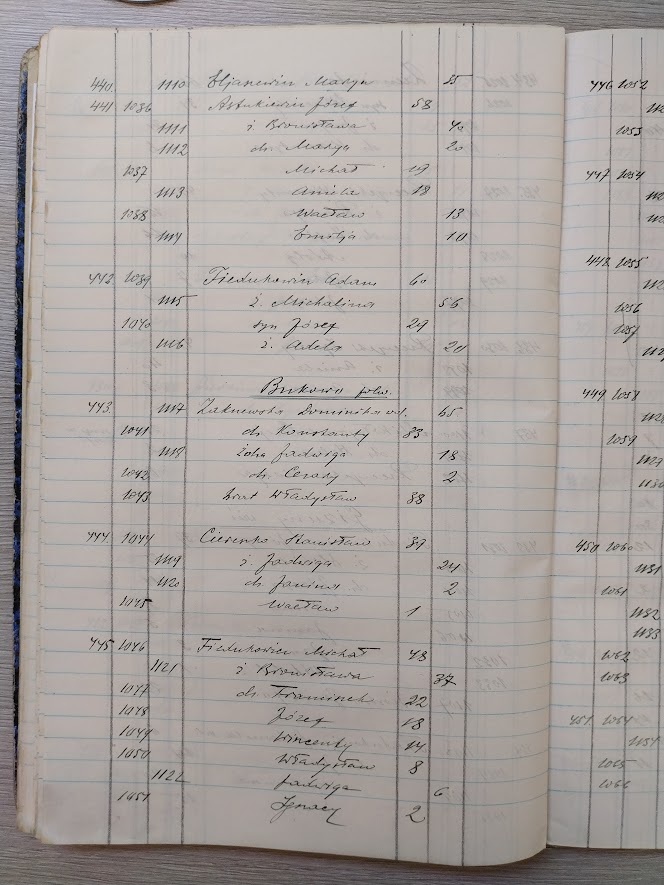 440 1110 Iljanewicz Marya 55
441 1036 Astukiewicz Józef 58
1111 ż. Bronisława 40
1112 ch. Marya 20
1037 Michał 19
1113 Aniela 18
1038 Wacław 13
1114 Emilja 10
442 1039 Fiedukowicz Adam 60
1115 ż. Michalina 56
1040 syn Józef 29
1116 ż. Adela 20
Bukowo folw.
443 1117 Dominika wd. 65
1041 ch. Konstanty 33
1118 żona Jadwiga 18
1042 ch. Cezary 2
1043 brat Władysław 38
444 1044 Cierenko Stanisław 37
1119 ż. Jadwiga 24
1120 ch. Janina 2
1045 Wacław 1
445 1046 Fiedukowicz Michał 43
1121 ż. Bronisława 37
1047 ch. Franciszek 22
1048 Józef 18
1049 Wincenty 14
1050 Władysław 8
1122 Jadwiga 6
1051 Ignacy 2
446 1052
1053
447 1054
448 1055
1056
1057
449 1058
1059
1129
1130
450 1060
1131
1061
1132
1133
1062
1063
451 1064
1065
1066